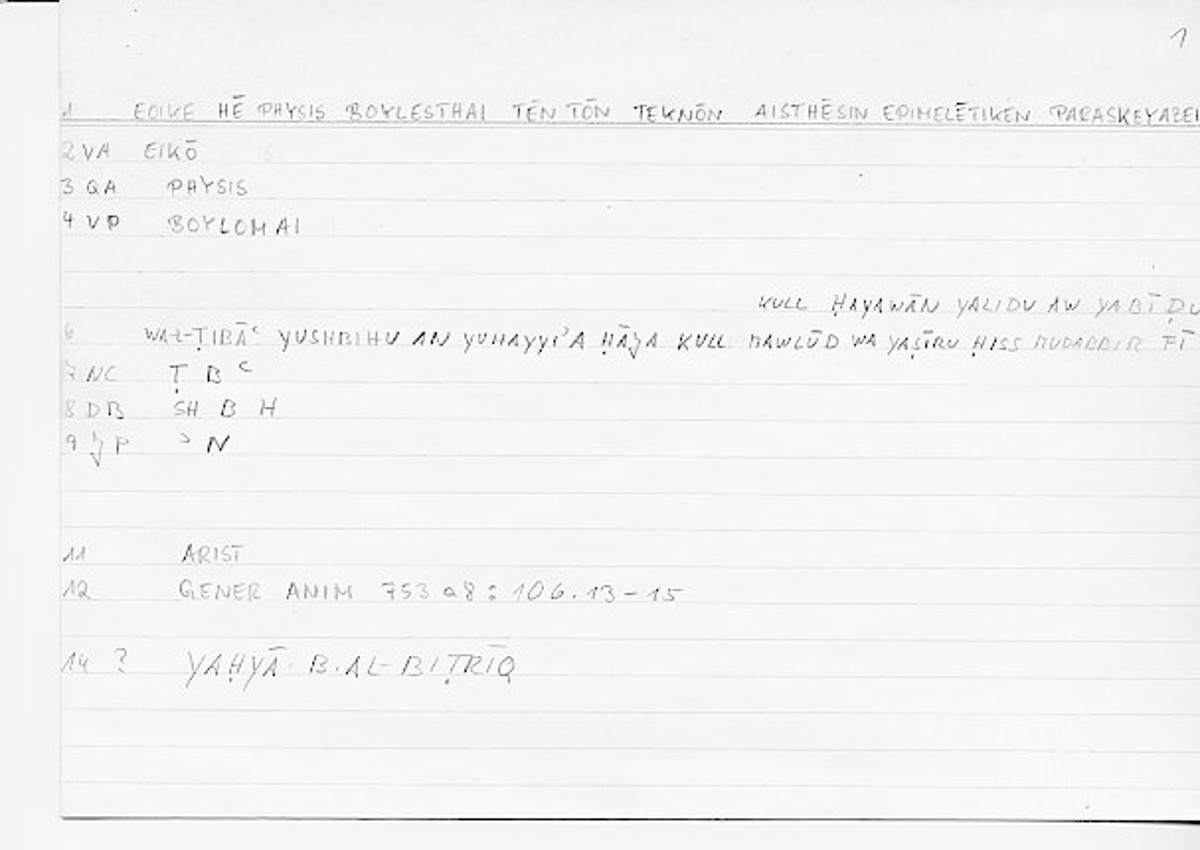 1
1 EOIKE HĒ PHYSIS BOYLESTHAI TĒN TŌN TEKNŌN AISTHĒSIN EPIMELĒTIKĒN PARASKEYAZEI
2 VA EIKŌ
3 QA PHYSIS
4 VP BOYLOMAI
KULL ḤAYAWĀN YALIDU AW YABĪḌU
6 WA-L-ṬIBĀʿ YUSHBIHU AN YUHAYYIʾA ḤĀJA KULL MAWLŪD WA YAṢĪRU ḤISS MUDABBIR FĪ
7 NC Ṭ B ʿ
8 DB SH B H
9 JP ʾ N
11 ARIST
12 GENER ANIM 753 a8 : 106.13-15
14 ? YAḤYĀ B. AL-BIṬRĪQ